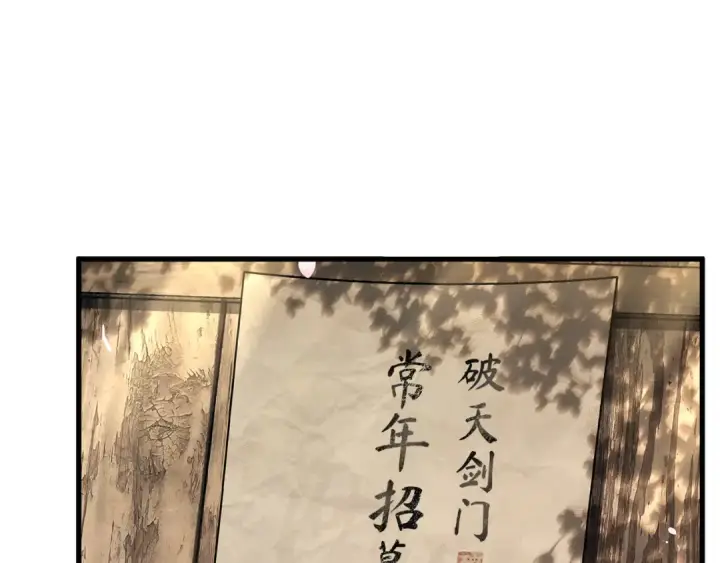 破天剑门
常年招